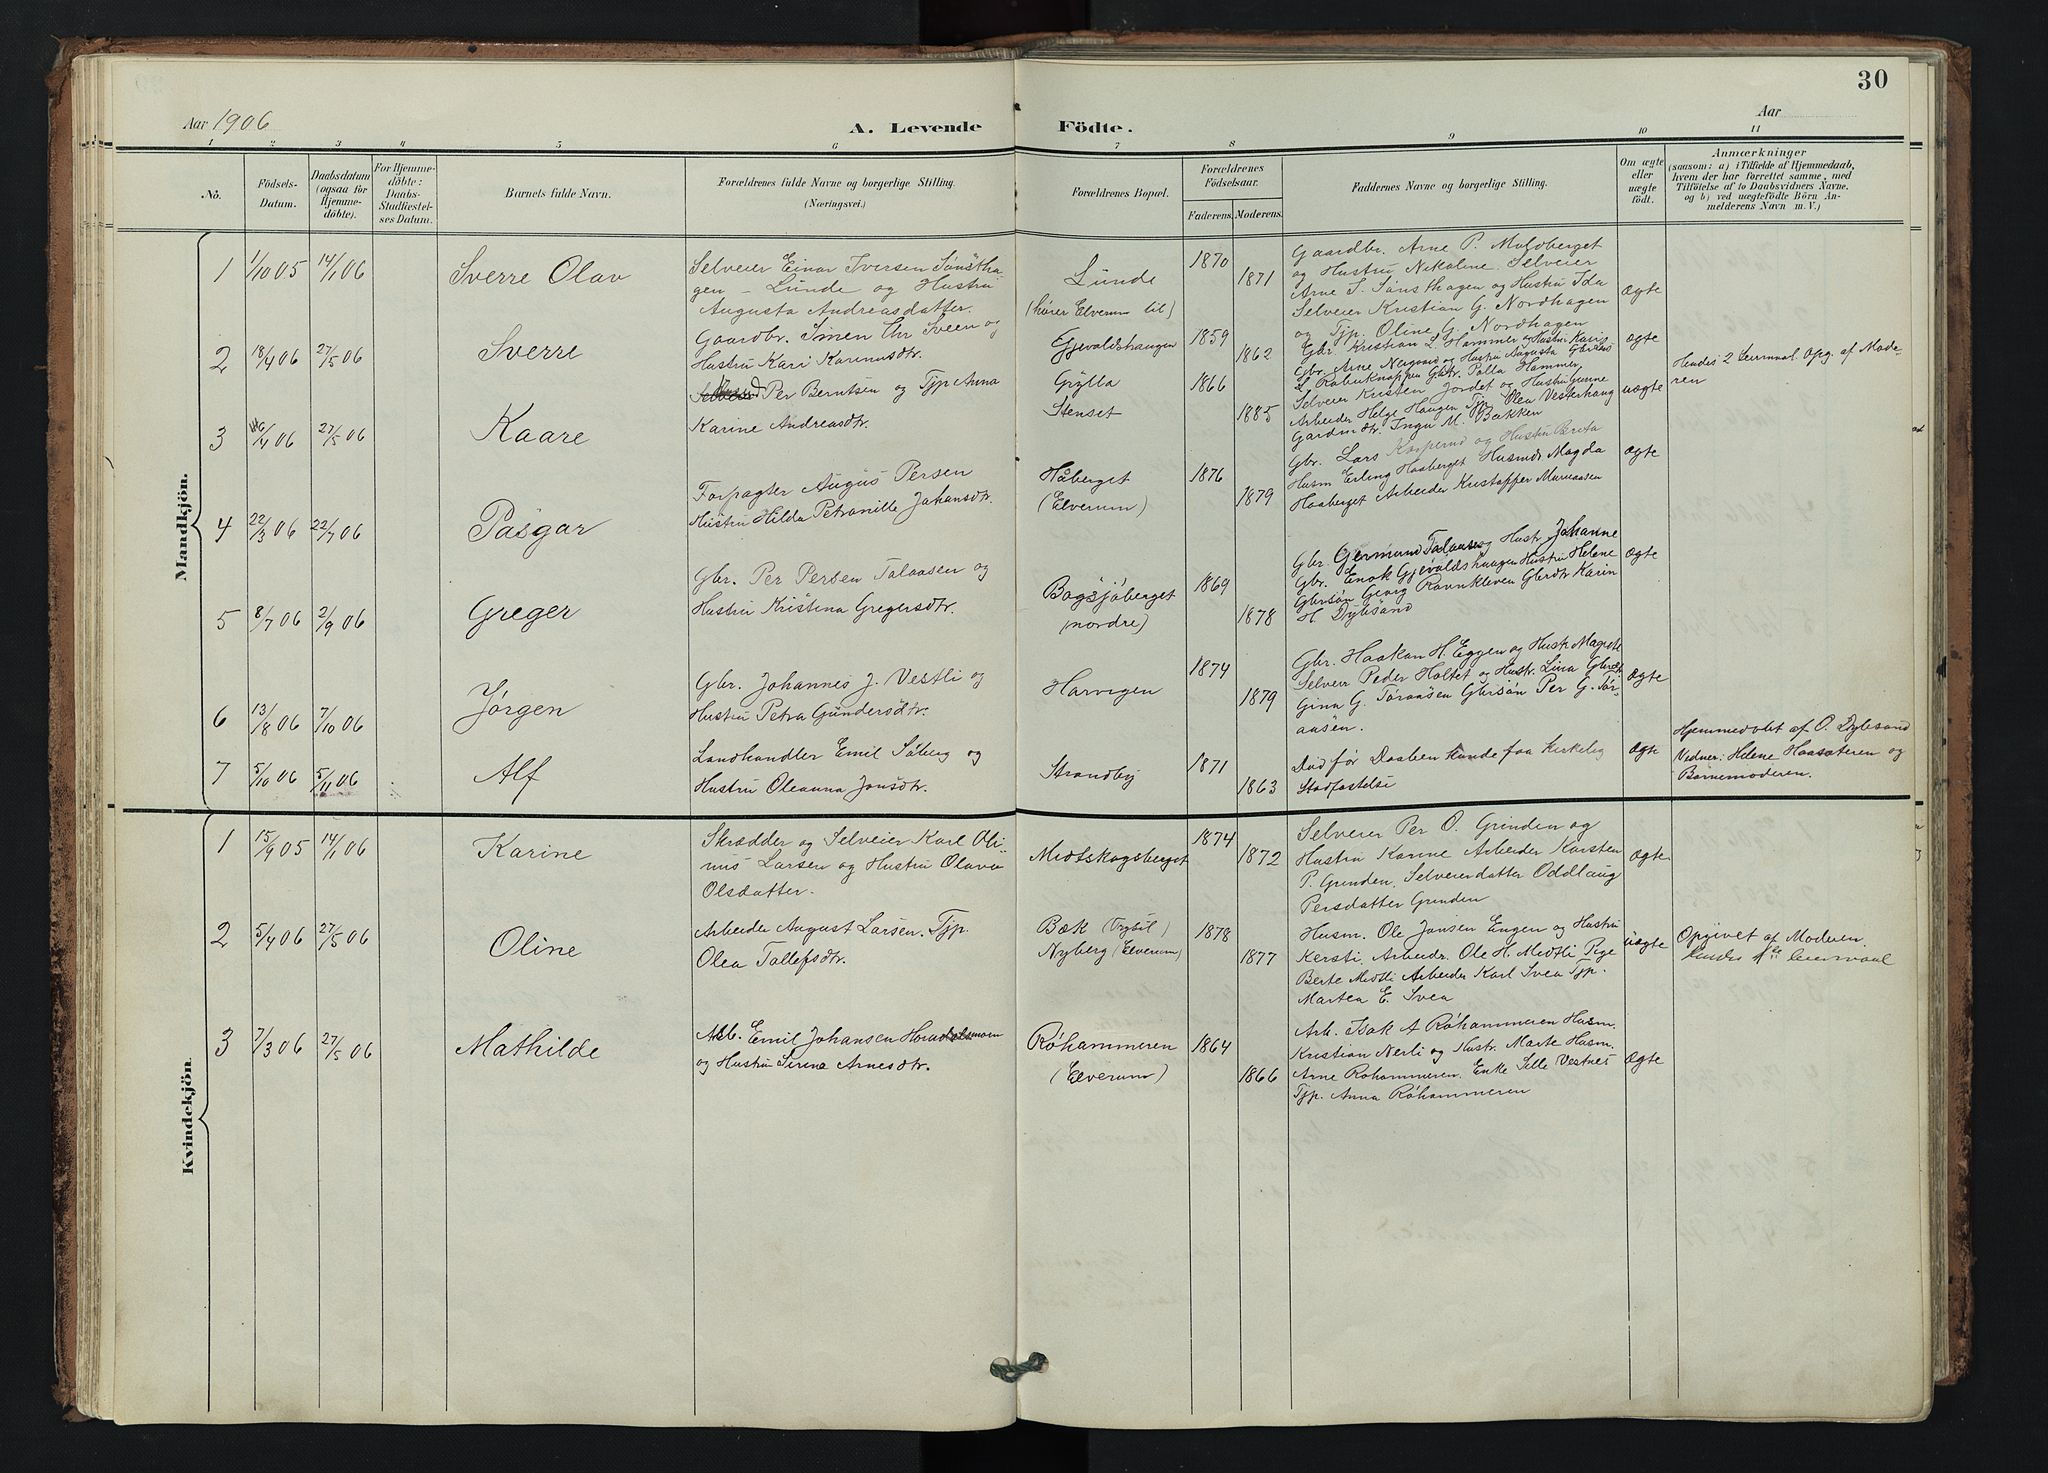 30
Aar 1906
A. Levende Födte.
Aar
1 2 3 4 5 6 7 8 9 10 11
No.
Födsels-Datum.
Daabsdatum (ogsaa for Hjemme-döbte).
For Hjemme-döbte: Daabs-Stadfæstel-ses Datum.
Barnets fulde Navn.
Forældrenes fulde Navne og borgerlige Stilling. (Næringsvei.)
Forældrenes Bopæl.
Forældrenes Födselsaar.
Faderens. Moderens.
Faddernes Navne og borgerlige Stilling.
Om ægte eller uægte födt.
Anmærkninger
(saasom: a) i Tilfælde af Hjemmedaab, hvem der har forrettet samme, med Tilföielse af to Daabsvidners Navne. og b) ved uægtefödte Börn An-melderens Navn m. V.)
Mandkjön.
1 1/10 05 14/1 06 Sverre Olav
Selveier Einar Iversen Sønstha
gen - Lunde og Hustru
Augusta Andreasdatter.
Lunde
(hører Elverum til)
1870 1871
Gaardbr. Arne P. Moldberget
og Hustru Nikoline. Selveier
Arne S. Sønsthagen og Hustru Ida
Selveier Kristian G. Nordhagen
og Tjp. Oline G. Nordhagen
Ægte
2 18/4 06 27/5 06 Sverre
Gaardbr. Simen Chr Sveen og
Hustru Kari Karinusdtr.
Gjevaldshaugen
1859 1862
Gbr. Kristian L. Hammer og Hustru Karis
Gbr. Arne Negaard og Hustru Augusta
Rabuknappen Gbdtr. Palla Hammer.
ægte
3 6/4 06 27/5 06 Kaare
Per Berntsen og Tjp Anna
Karine Andreasdtr.
Grylla
Stenset
1866 1885
Selveier Kristen Jordet og Hustru Gunne
Arbeider Helge Haugen Tjp Olea Vesterhaug
Gardmdtr. Inga M. Bakken
uægte
Hendes 2 Leiermaal. Opg. af Mode-
ren
4 22/3 06 22/7 06 Pasgar
Forpagter Augus Persen
Hustru Hilda Petronille Johansdtr.
Håberget
(Elverum)
1876 1879
Gbr. Lars Kopperud og Hustru Berta
Husm Erling Haaberget Husmdr Magda
Haaberget Arbeider Kristoffer
Ægte
5 8/7 06 2/9 06 Greger
Gbr. Per Persen Talaasen og
Hustru Kristina Gregersdtr.
Bogsjøberget
(nordre)
1869 1878
Gbr. Germund Talaasen og Hustr. Johanne
Gbr. Enok Gjevaldshaugen Hustru Helene
Gbrsøn Georg Ravnkleven Gbrdtr Karin
H. Dylesand
Ægte
6 13/8 06 7/10 06 Jørgen
Gbr. Johannes J. Vestli og
Hustru Petra Gundersdtr.
Harvigen
1874 1879
Gbr. Haakan H. Eggen og Hustr Magnte
Selveir Peder Holtet og Hustr. Lina Gbrdtr
Gina G. Tøraasen Gbrsøn Per G. Tør-
aasen.
Ægte
7 5/10 06 5/11 06 Alf
Landhandler Emil Søberg og
Hustru Oleanna Jonsdtr.
Strandby
1871 1863
Død før Daaben kunde faa kirkelig
Stadfæstelse
Ægte
Hjemmedøbt af O. Dylesand
Vidner: Helene Haasæteren og
Barnemoderen.
Kvindekjön.
1 15/9 05 14/1 06 Karine
Skrædder og Selveier Karl Oli
nus Larsen og Hustru Olava
Olsdatter.
Midtskogsberget
1874 1872
Selveier Per O. Grinden og
Hustru Karine Arbeider Karsten
P. Grinden. Selveierdatter Oddlaug
Persdatter Grinden
Ægte
2 5/4 06 27/5 06 Oline
Arbeider August Larsen. Tjp.
Olea Tollefsdtr.
Bæk (Trysil)
Nyberg (Elverum)
1878 1877
Husm. Ole Jonsen Engen og Hustru
Kersti. Arbeidr. Ole H. Midtli Pige
Berte Midtli Arbeider Karl Svea Tjp.
Martea E. Svea
uægte
Opgivet af Moderen.
Hendes 1ste Leiermaal
3 7/3 06 27/5 06 Mathilde
Arb. Emil Johansen
og Hustru Sirina Arnesdtr.
Røhammeren
(Elverum)
1864 1866
Arb. Isak A Røhammeren Husm.
Kristian Nerli og Hustr. Marte Husm.
Arne Røhammeren. Enke Sille Vestnes
Tjp. Anna Røhammeren
Ægte